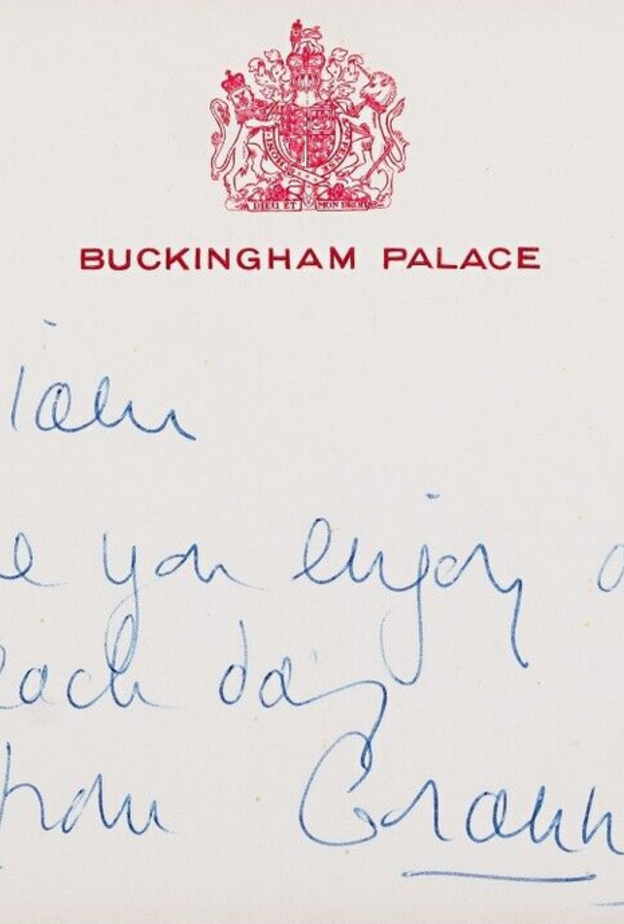 DIEU ET MON DROIT
BUCKINGHAM PALACE
iam
e you enjoy a
each day
from Grann